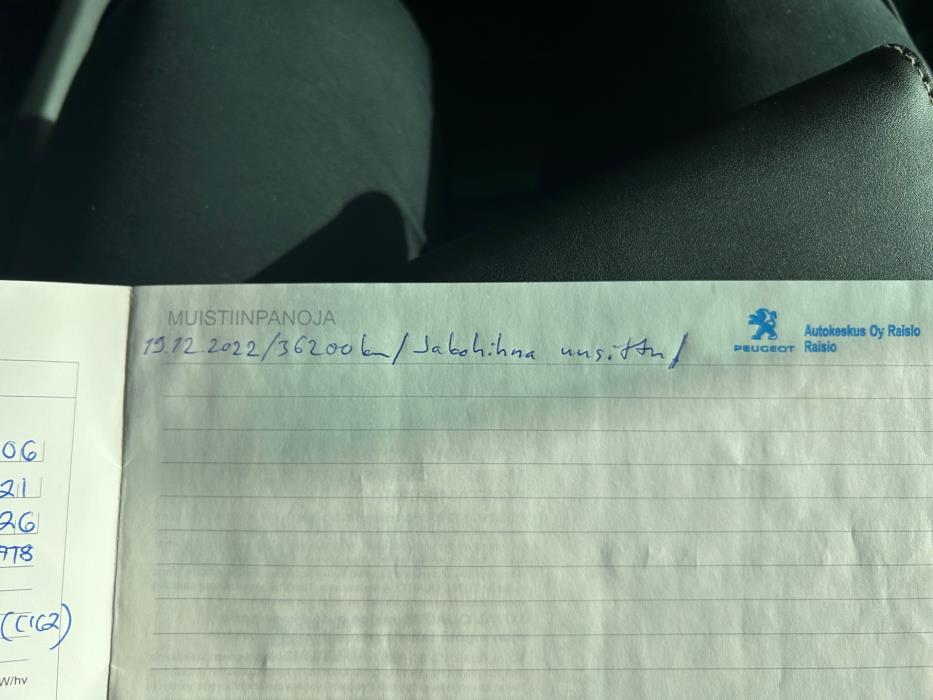 MUISTIINPANOJA
19.12.2022/36200 km/Jakohihna uusittu/
PEUGEOT
Autokeskus Oy Raisio
Raisio
06
21
26
778
(CC62)
W/hv